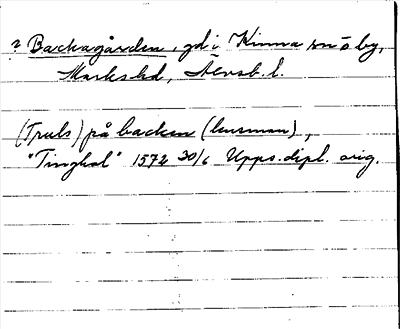 ? Backagården, gd i Kinna sn o by,
Marks hd, Älvsb. l.
(Truls) på backen (husman),
"Tinghol" 1572 30/6 Upps. dipl. orig.